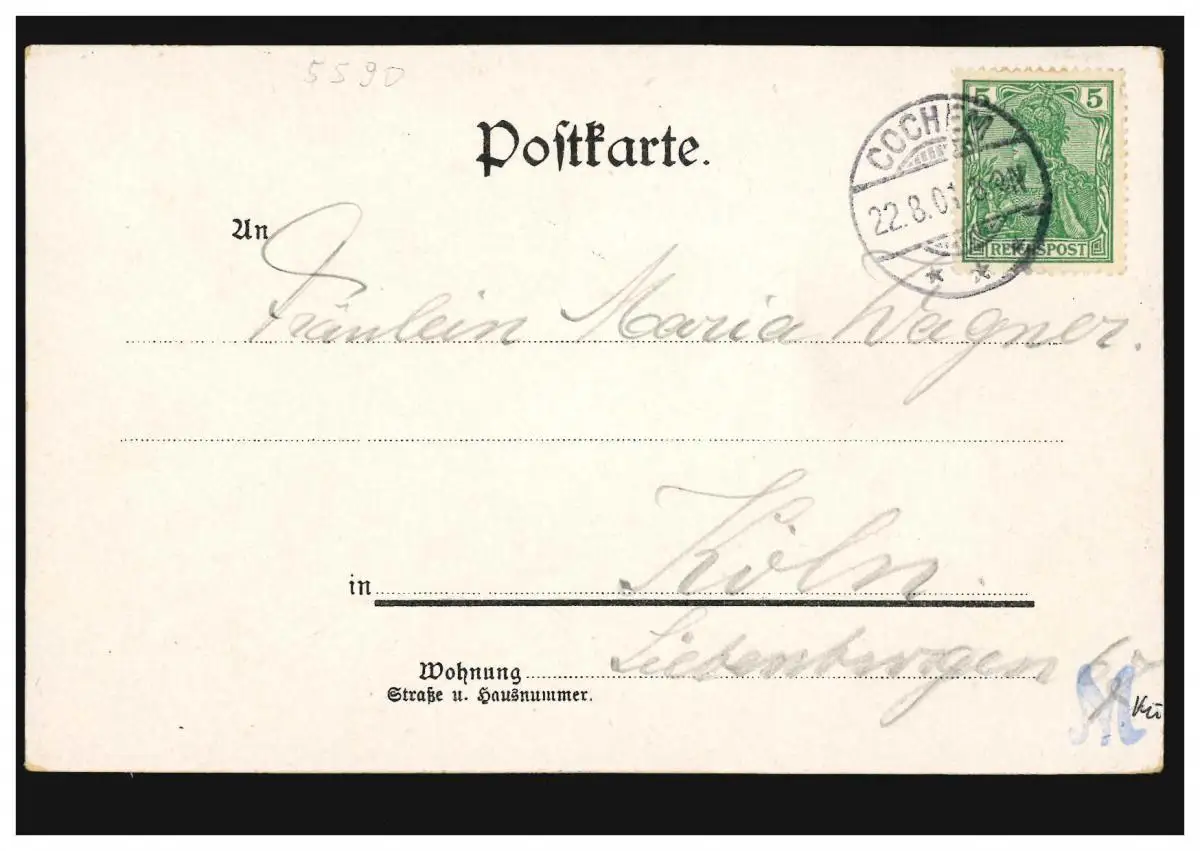 5590
Postkarte.
5 5
REICHSPOST
COCHEM
22.8.01 8-9N
An
Fräulein Maria Wagner.
in Köln.
Wohnung
Straße u. Hausnummer.
M
Kü